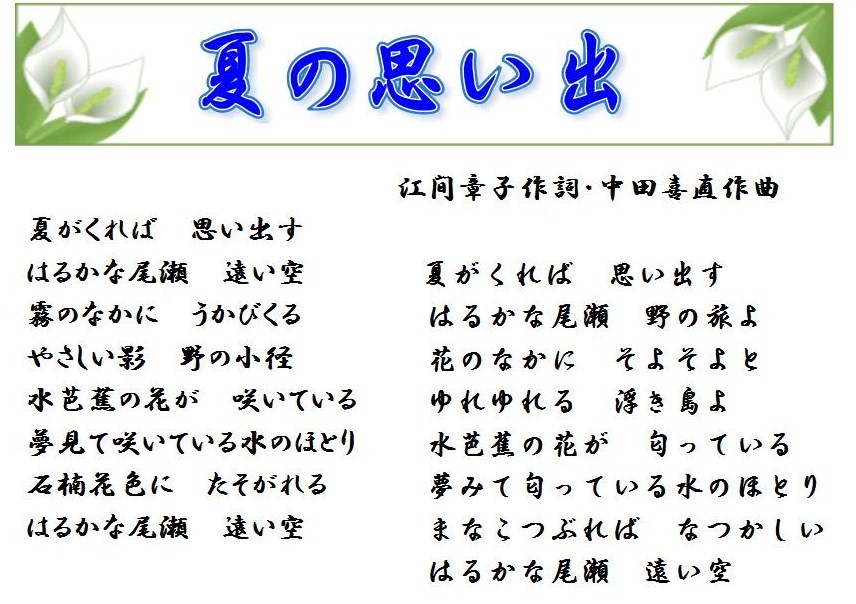 夏の思い出
江间章子作詞·中田喜直作曲
夏がくれば　思い出す
はるかな尾瀬　遠い空
霧のなかに　うかびくる
やさしい影　野の小径
水芭蕉の花が　咲いている
夢見て咲いている水のほとり
石楠花色に　たそがれる
はるかな尾瀬　遠い空
夏がくれば　思い出す
はるかな尾瀬　野の旅よ
花のなかに　そよそよと
ゆれゆれる　浮き島よ
水芭蕉の花が　匂っている
夢みて匂っている水のほとり
まなこつぶれば　なつかしい
はるかな尾瀬　遠い空